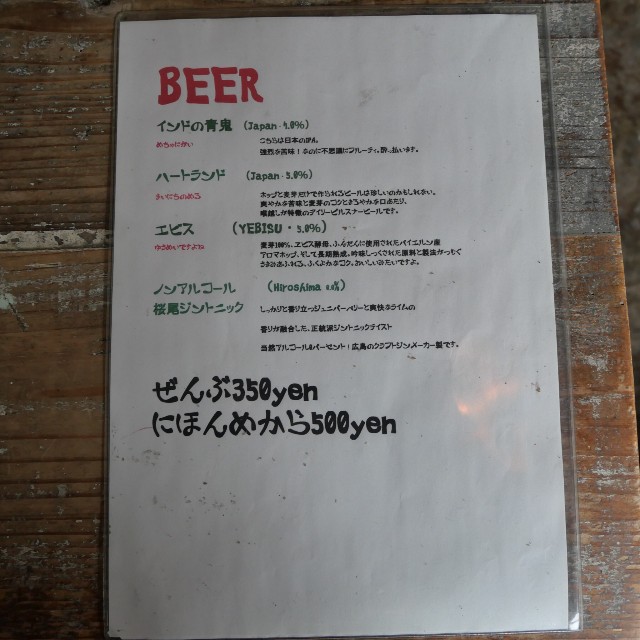 BEER
インドの青鬼 (Japan・4.0%)
めちゃにがい
こちらは日本のぱん。
強烈な苦味！なのに不思議にフルーティ。酔っ払います。
ハートランド (Japan・5.0%)
まいにちのめる
ホップと麦芽だけで作られるビールは珍しいのかもしれない。
爽やかな苦味と麦芽のコクとまろやかな口あたり、
喉越しが特徴のデイリーピルスナービールです。
エビス (YEBISU・5.0%)
ゆうめいですよね
麦芽100%、エビス酵母、ふんだんに使用されたバイエルン産
アロマホップ、そして長期熟成。吟味しつくされた原料と製法がつむぐ
うまみあふれる、ふくよかなコク。おいしいみたいですよ。
ノンアルコール (Hiroshima
桜尾ジントニック
しっかりと香り立つジュニパーベリーと爽快なライムの
香りが融合した、正統派ジントニックテイスト
当然アルコール0パーセント！広島のクラフトジンメーカー製です。
ぜんぶ350yen
にほんめから500yen